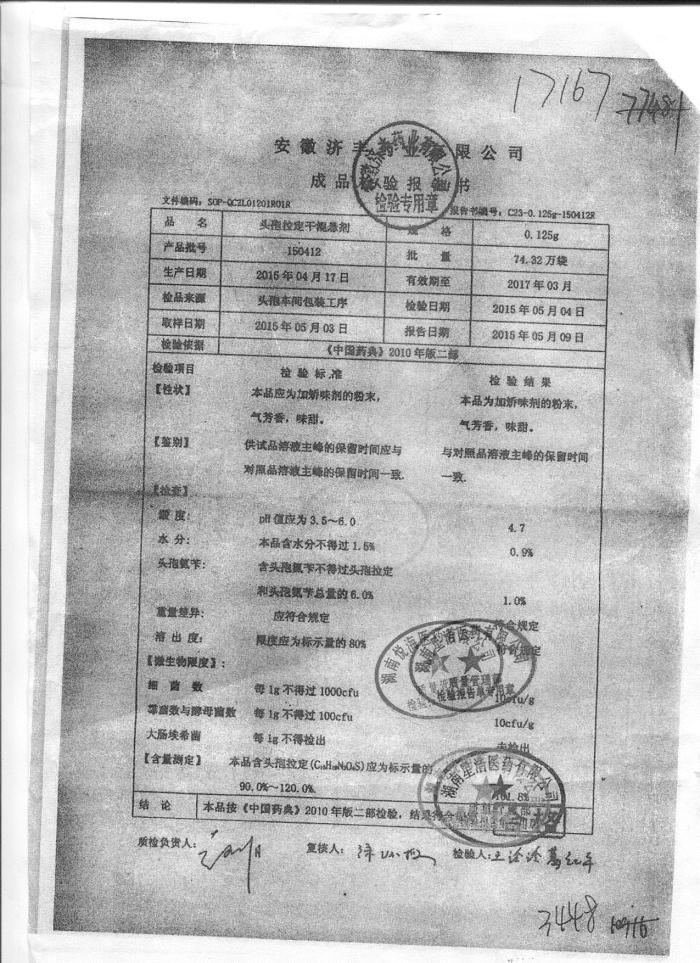 17167 77484
安徽济丰药业有限公司
成品检验报告书
检验专用章
文件编码：SOP-QCZL01201R01R 报告书编号：C23-0.125g-150412R
品 名 头孢拉定干混悬剂 规 格 0.125g
产品批号 150412 批 量 74.32 万袋
生产日期 2015 年 04 月 17 日 有效期至 2017 年 03 月
检品来源 头孢车间包装工序 检验日期 2015 年 05 月 04 日
取样日期 2015 年 05 月 03 日 报告日期 2015 年 05 月 09 日
检验依据 《中国药典》2010 年版二部
检验项目 检 验 标 准 检 验 结 果
【性状】 本品应为加矫味剂的粉末， 本品为加矫味剂的粉末，
气芳香，味甜。 气芳香，味甜。
【鉴别】 供试品溶液主峰的保留时间应与 与对照品溶液主峰的保留时间
对照品溶液主峰的保留时间一致. 一致.
【检查】
酸 度： pH 值应为 3.5～6.0 4.7
水 分： 本品含水分不得过 1.5% 0.9%
头孢氨苄： 含头孢氨苄不得过头孢拉定
和头孢氨苄总量的 6.0% 1.0%
重量差异： 应符合规定 符合规定
溶 出 度： 限度应为标示量的 80% 符合规定
【微生物限度】：
细 菌 数 每 1g 不得过 1000cfu 10cfu/g
霉菌数与酵母菌数 每 1g 不得过 100cfu 10cfu/g
大肠埃希菌 每 1g 不得检出 未检出
【含量测定】 本品含头孢拉定(C₁₆H₁₉N₃O₄S)应为标示量的
90.0%～120.0% 101.8%
湖南星浩医药有限公司
质量管理部
检验报告单专用章
结 论 本品按《中国药典》2010 年版二部检验，结果符合
质检负责人： 复核人： 检验人：
3448